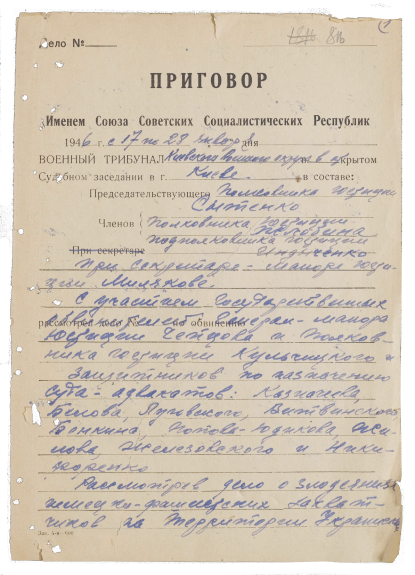 Дело №
1816 816
ПРИГОВОР
Именем Союза Советских Социалистических Республик
1946 г. с 17 по 28 января дня
ВОЕННЫЙ ТРИБУНАЛ Киевского военного округа в открытом
Судебном заседании в г. Киеве в составе:
Председательствующего Полковника юстиции
Сытенко
Членов Полковника юстиции
подполковника юстиции
При секретаре
При секретаре - майоре юсти
ции
С участием Государственных
рассмотрел дело № по обвинению
обвинителей Генерал-майора
Юстиции Чепцова и Полков
ника юстиции Кульчицкого и
Защитников по назначению
суда - адвокатов: Казначеева,
Белова, Пуховского, Витвинского
Бенкина,
Железовского и Ники
форенко
Рассмотрев дело о злодеяниях
немецко-фашистских захват
чиков на территории Украинск